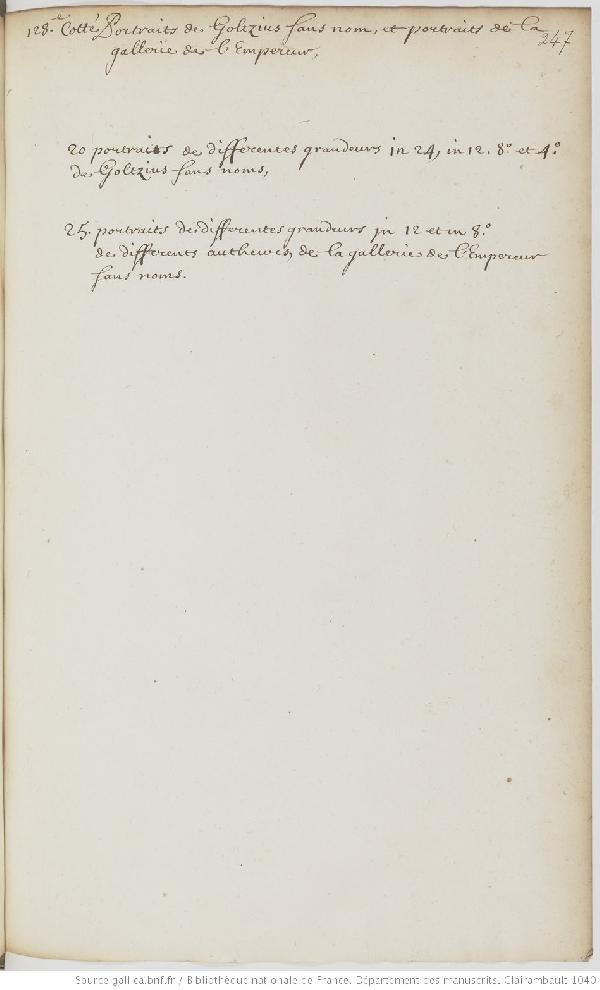 128.e Cotté Portraits de Goltzius sans nom, et portraits de la
247
gallerie de l'Empereur,
20 portraits de differentes grandeurs in 24, in 12. 8.o et 4.o
de Goltzius sans noms,
25. portraits de differentes grandeurs in 12 et in 8.o
de differents autheurs, de la gallerie de l'Empereur
sans noms.
Source gallica.bnf.fr / Bibliothèque nationale de France. Département des manuscrits. Clairambault 1040